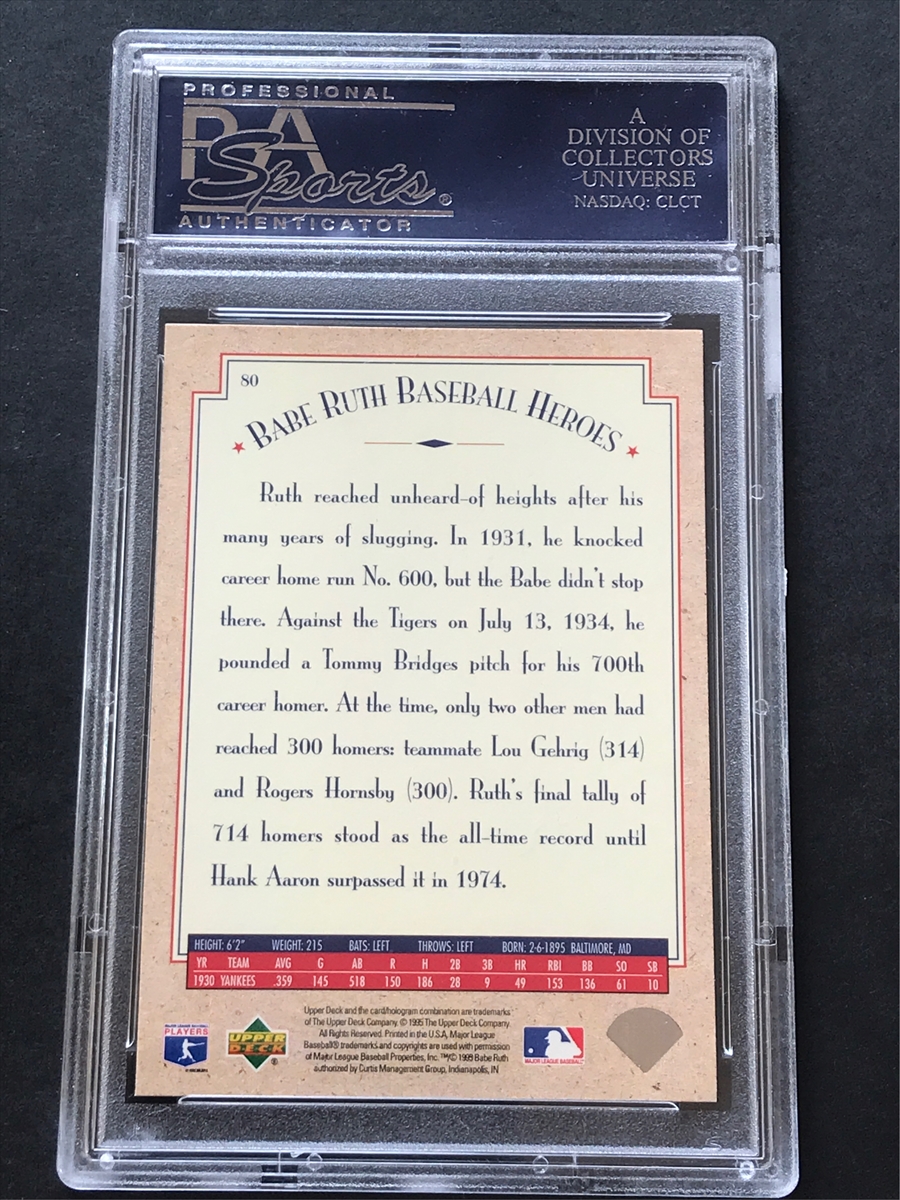 PROFESSIONAL
PSA
Sports®
AUTHENTICATOR
A
DIVISION OF
COLLECTORS
UNIVERSE
NASDAQ: CLCT
80
★ BABE RUTH BASEBALL HEROES ★
Ruth reached unheard-of heights after his
many years of slugging. In 1931, he knocked
career home run No. 600, but the Babe didn't stop
there. Against the Tigers on July 13, 1934, he
pounded a Tommy Bridges pitch for his 700th
career homer. At the time, only two other men had
reached 300 homers: teammate Lou Gehrig (314)
and Rogers Hornsby (300). Ruth's final tally of
714 homers stood as the all-time record until
Hank Aaron surpassed it in 1974.
HEIGHT: 6'2" WEIGHT: 215 BATS: LEFT THROWS: LEFT BORN: 2-6-1895 BALTIMORE, MD
YR TEAM AVG G AB R H 2B 3B HR RBI BB SO SB
1930 YANKEES .359 145 518 150 186 28 9 49 153 136 61 10
Upper Deck and the card/hologram combination are trademarks
of The Upper Deck Company. © 1995 The Upper Deck Company.
All Rights Reserved. Printed in the U.S.A. Major League
Baseball® trademarks and copyrights are used with permission
of Major League Baseball Properties, Inc. ™/© 1995 Babe Ruth
authorized by Curtis Management Group, Indianapolis, IN
MAJOR LEAGUE BASEBALL
PLAYERS
UPPER
DECK®
MAJOR LEAGUE BASEBALL